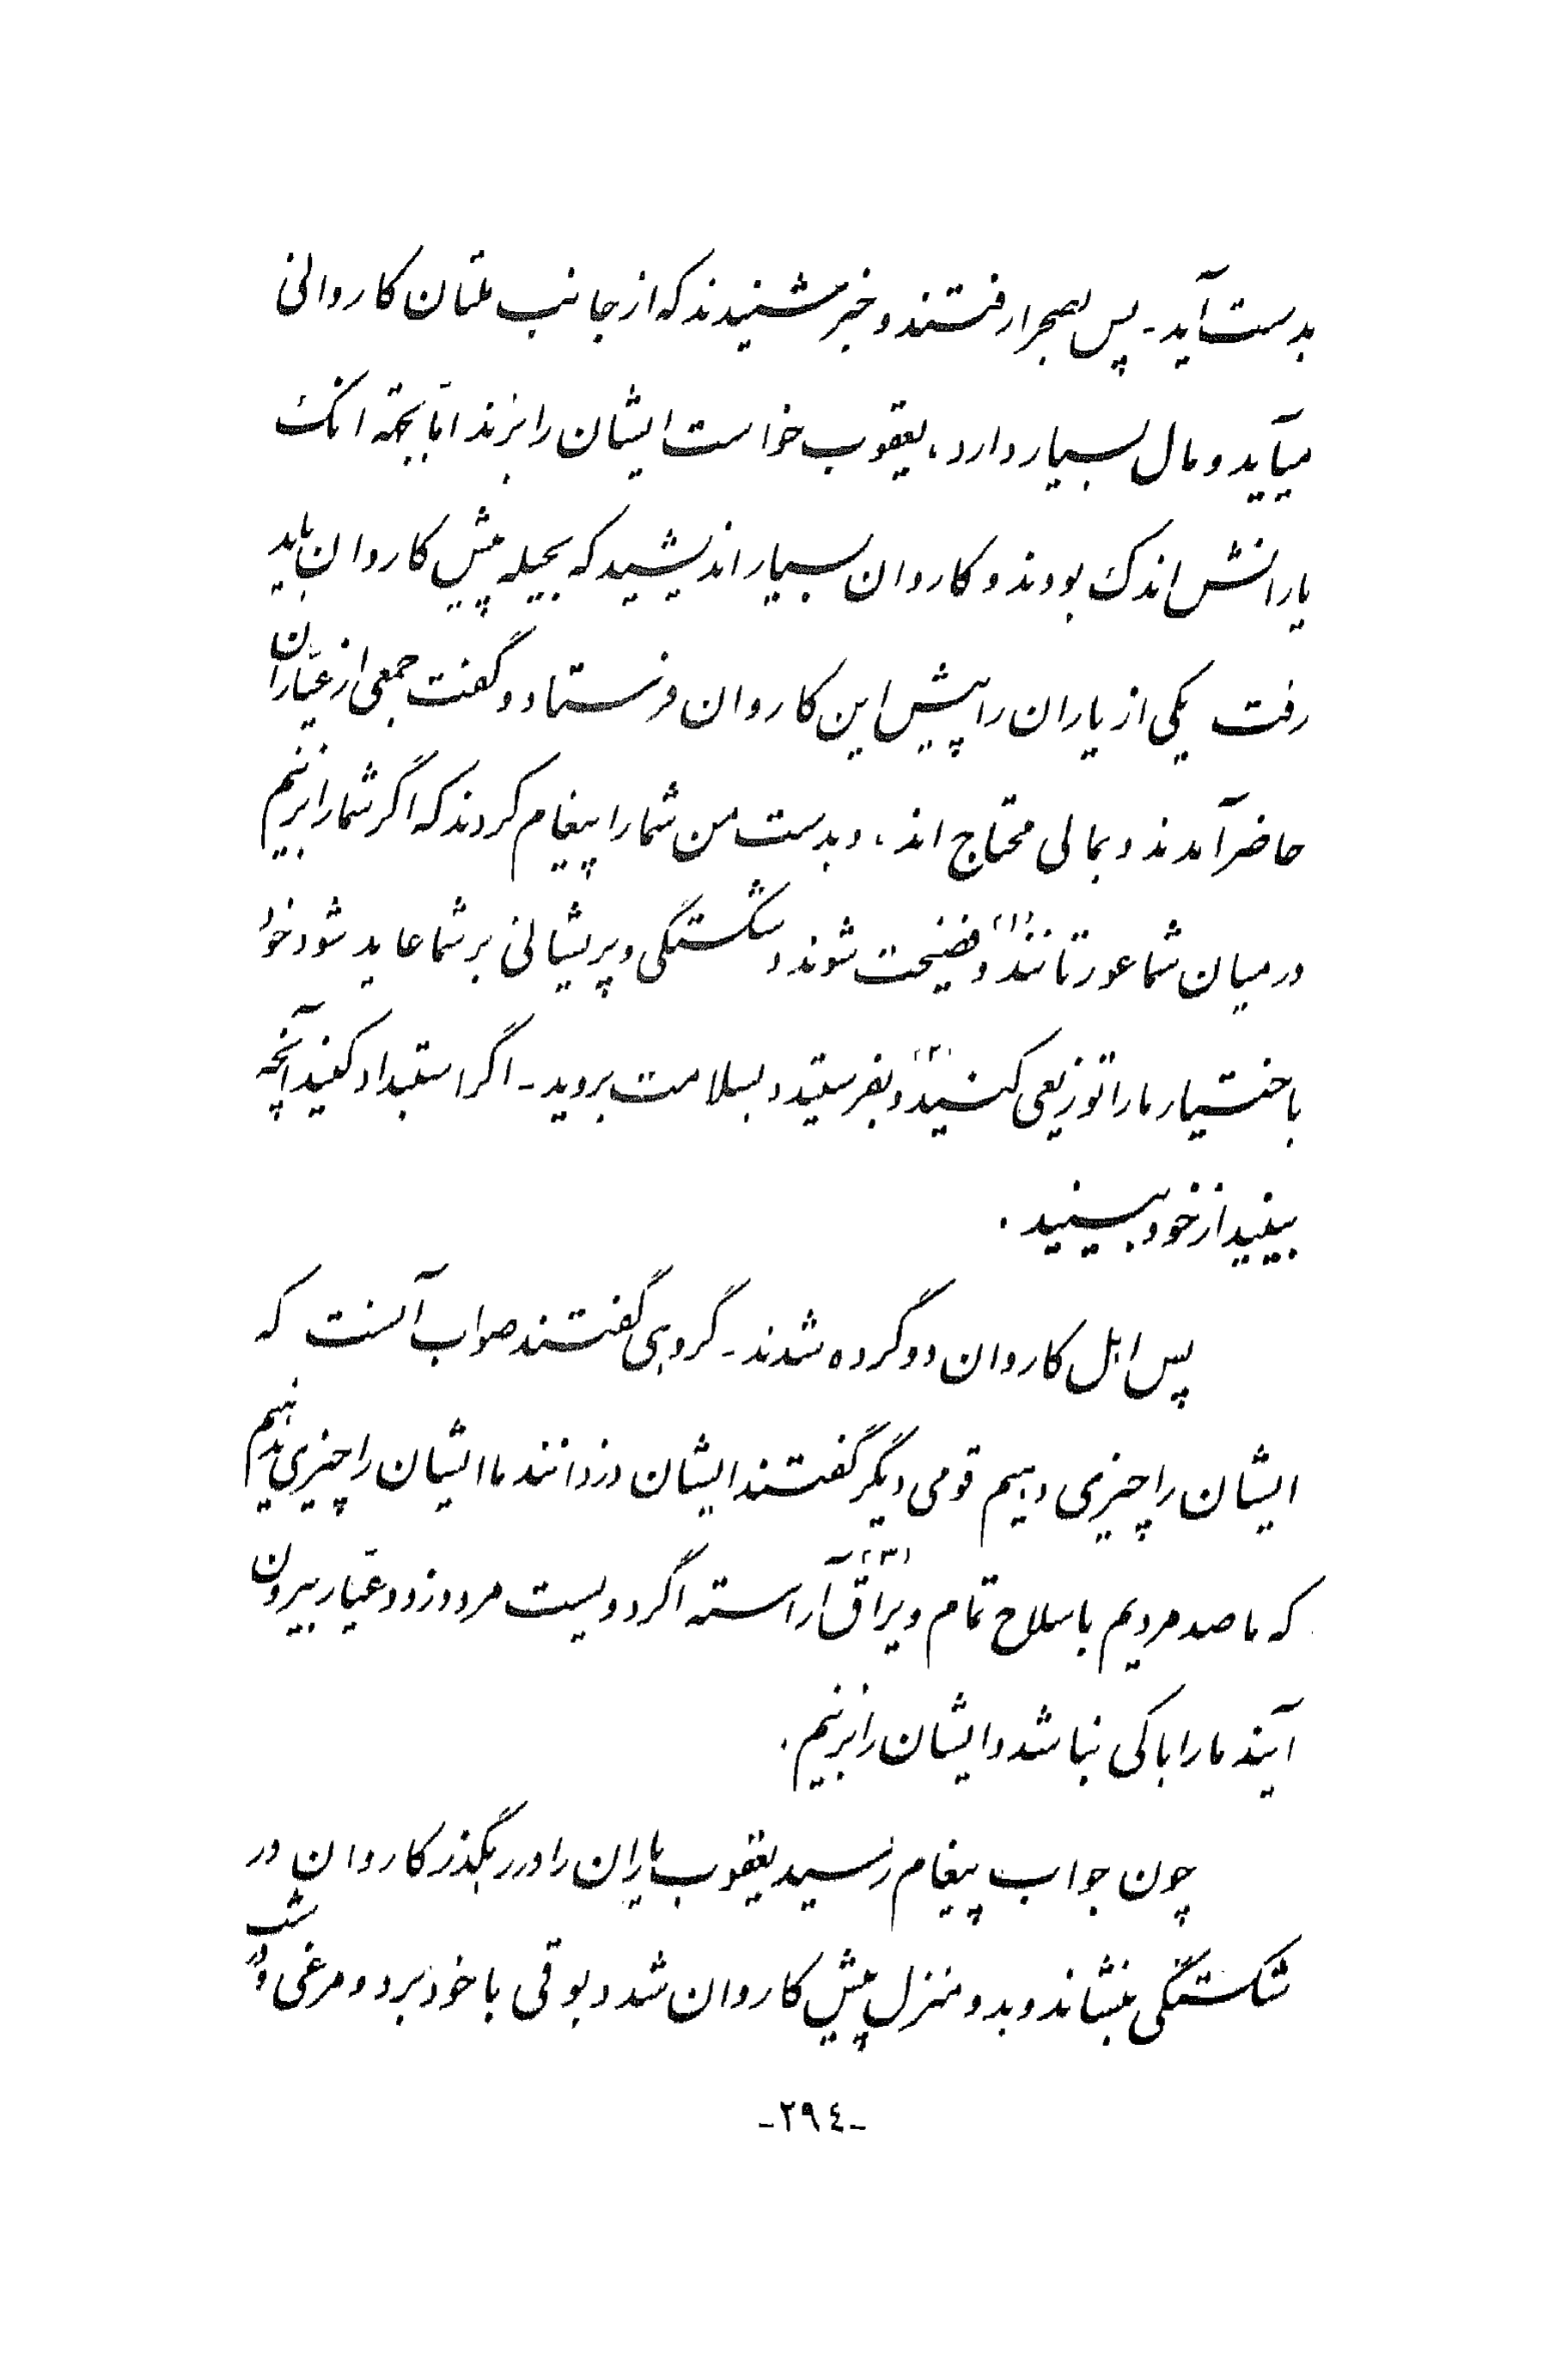 بدست آید - پس بصحرا رفتند و خبر شنیدند که از جانب ملتان کاروانی
میآید و مال بسیار دارد، یعقوب خواست ایشان را بزند اما بجهة انک
یارانش اندک بودند و کاروان بسیار اندیشید که بحیله پیش کاروان باید
رفت یکی از یاران را پیش این کاروان فرستاد و گفت جمعی از عیّاران
حاضر آمدند و بمالی محتاج اند، و بدست من شما را پیغام کردند که اگر شما را بزنیم
در میان شما عورتانند (۱) و فضیحت شوند و شکستگی و پریشانی بر شما عاید شود خود
باختیار ما را توزیعی کنید (۲) و بفرستید و بسلامت بروید - اگر استبداد کنید آنچه
ببینید از خود ببینید .
پس اهل کاروان دو گروه شدند - گروهی گفتند صواب آنست که
ایشان را چیزی دهیم قومی دیگر گفتند ایشان دزدانند ما ایشان را چیزی ندهیم
که ما صد مردیم با سلاح تمام و یراق (۳) آراسته اگر دویست مرد دزد و عیّار بیرون
آیند ما را باکی نباشد و ایشان را بزنیم .
چون جواب پیغام رسید یعقوب یاران را در رهگذر کاروان در
شکستگی بنشاند و بدو منزل پیش کاروان شد و بوقی با خود برد و مرغی و در شب
-۲۹٤-